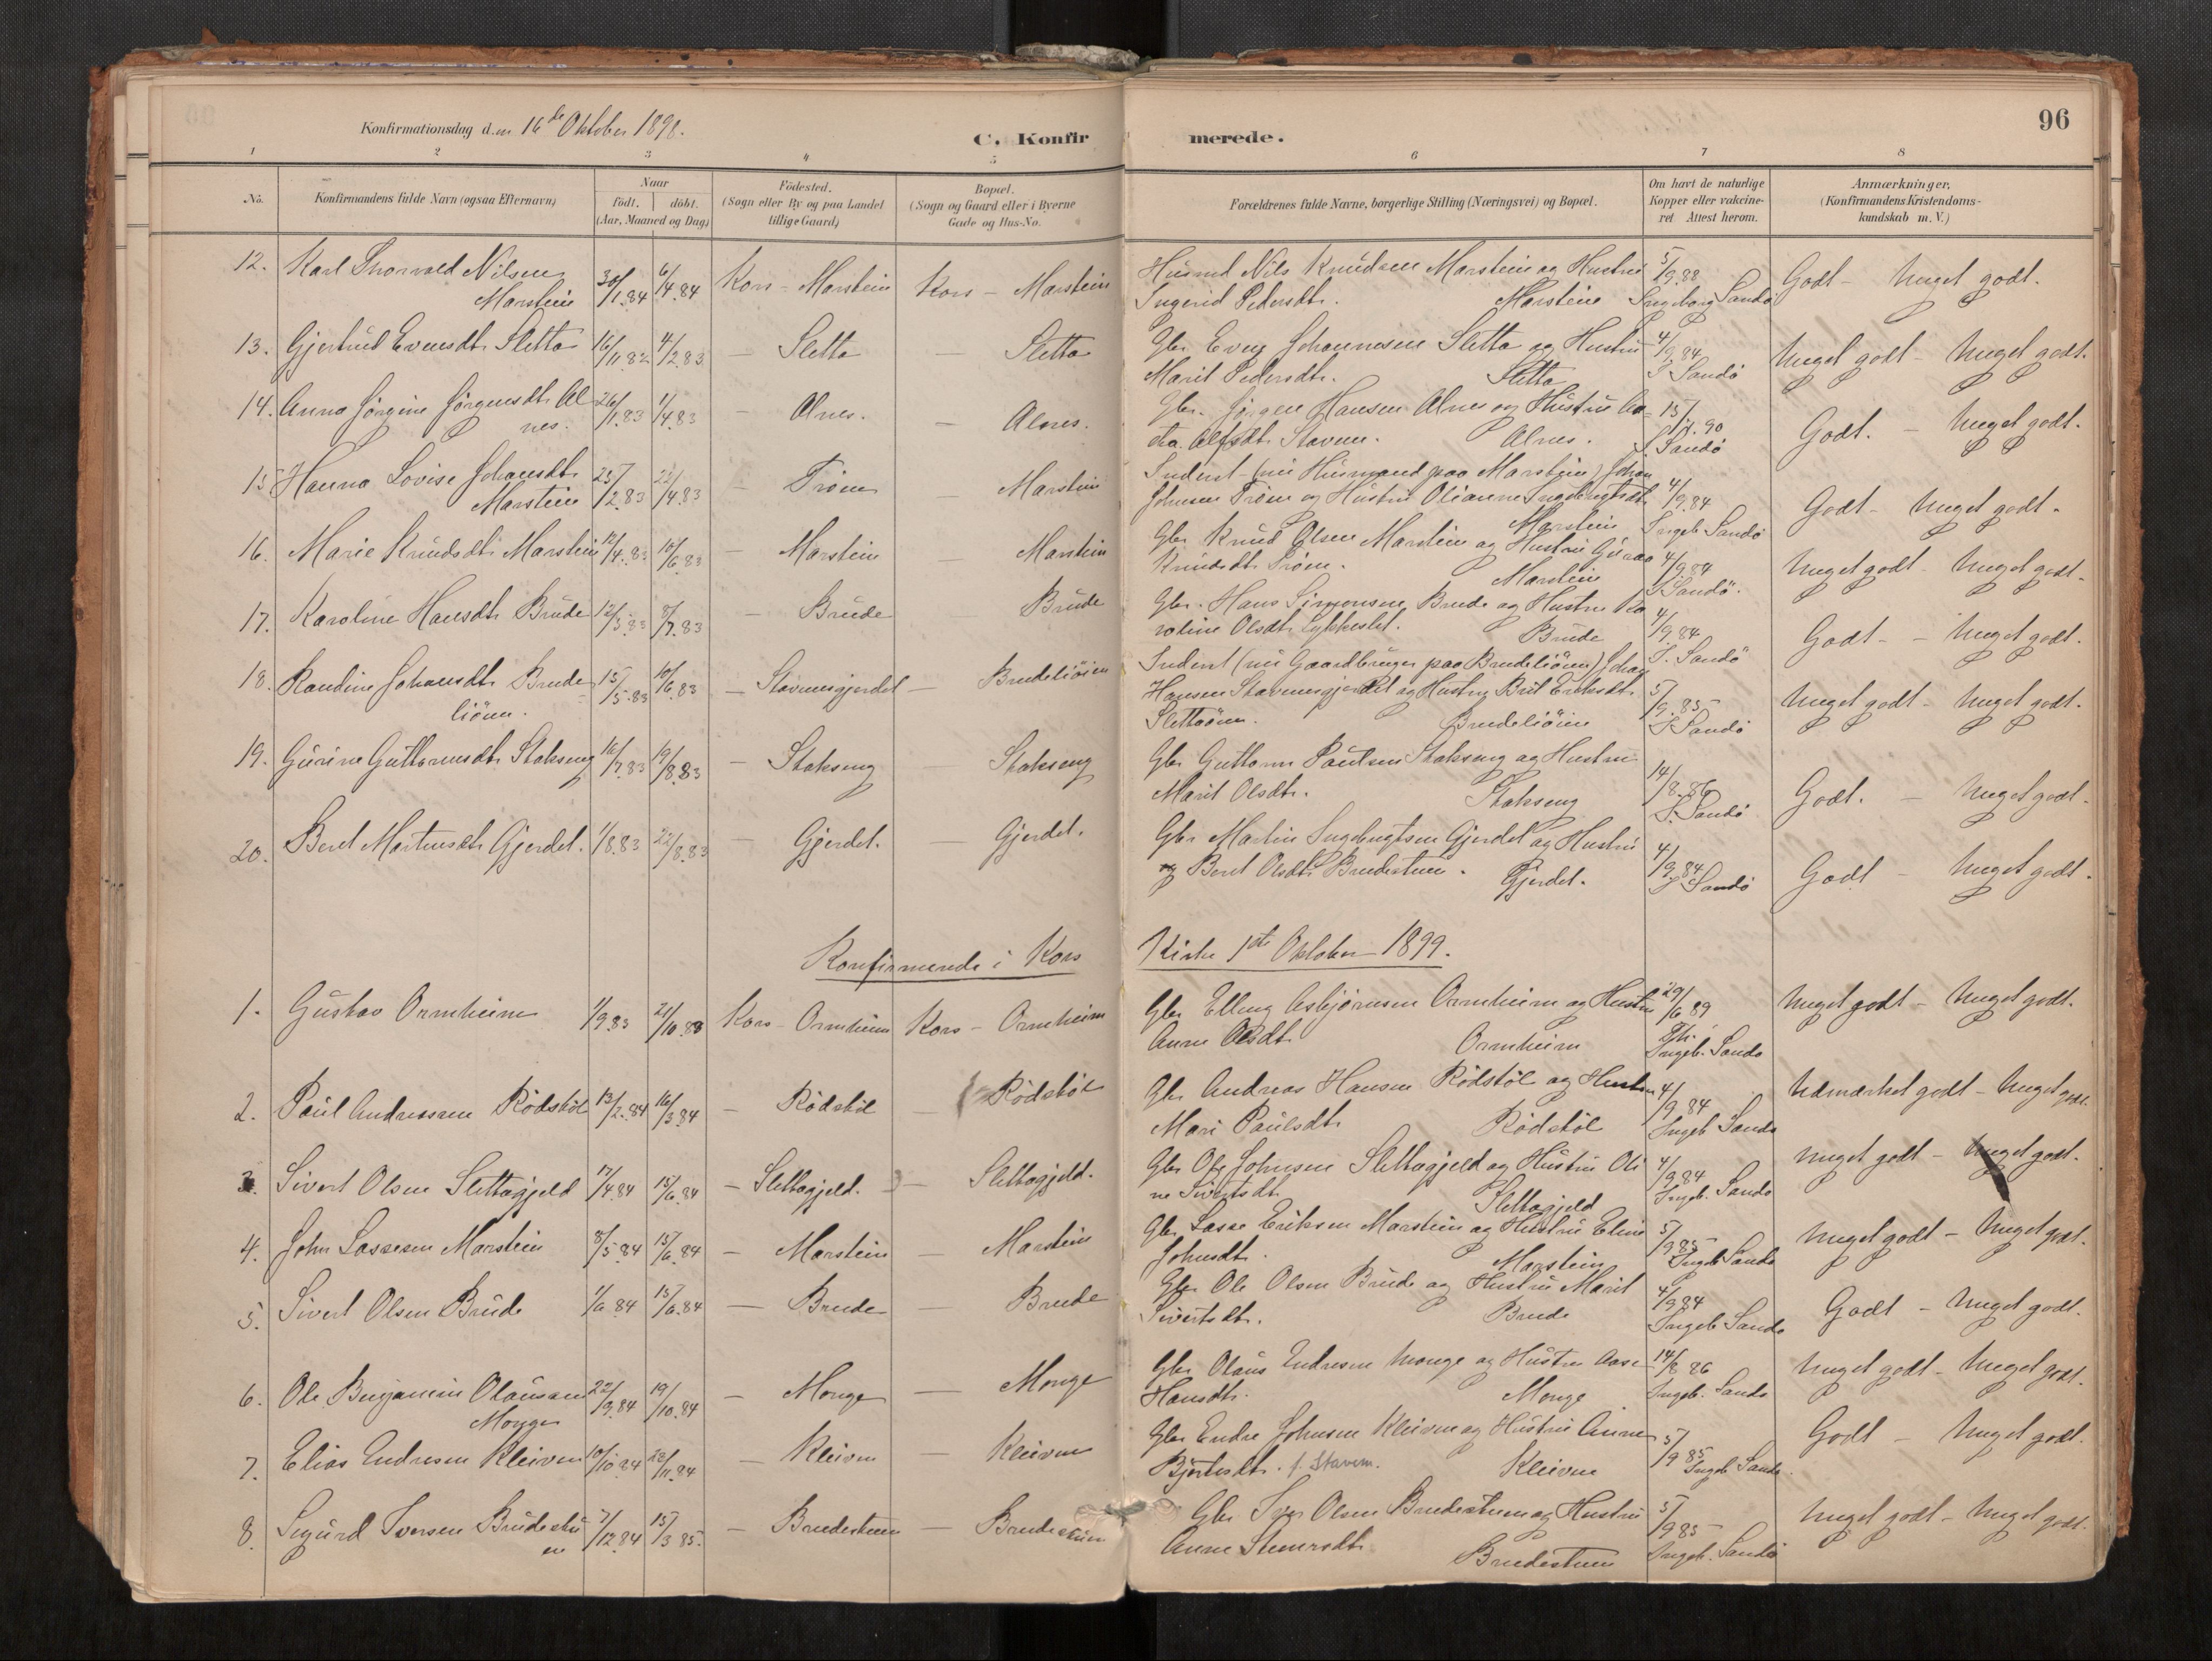 Konfirmationsdag den 16de Oktober 1898.
C. Konfirmerede.
96
1 2 3 4 5 6 7 8
No.
Konfirmandens fulde Navn (ogsaa Efternavn)
Naar
födt. döbt.
(Aar, Maaned og Dag)
Födested.
(Sogn eller By og paa Landet
tillige Gaard)
Bopæl.
(Sogn og Gaard eller i Byerne
Gade og Hus-No.
Forældrenes fulde Navne, borgerlige Stilling (Næringsvei) og Bopæl.
Om havt de naturlige
Kopper eller vakcine-
ret Attest herom.
Anmærkninger.
(Konfirmandens Kristendoms-
kundskab m. V.)
12. Karl Thorvald Nilsen 30/1.84 6/4.84 Kors - Marstein Kors - Marstein Husmd Nils Knudsen Marstein og Hustru 5/9.88 Godt - Meget godt.
Marstein Ingerid Pedersdtr. Marstein Ingeborg Sandö
13. Gjertrud Evensdtr Sletta 16/11.82 4/2.83 — Sletta — Sletta Gbr Even Johannesen Sletta og Hustru 4/9.84 Meget godt - Meget godt.
Marit Pedersdtr. Sletta I Sandö
14. Anna Jörgine Jörgensdtr Al- 26/1.83 1/4.83 — Alnes. — Alnes. Gbr. Jörgen Hansen Alnes og Hustru 15/7.90 Godt. - Meget godt.
nes. Alfsdtr Stavem. Alnes. I. Sandö
15 Hanna Lovise Johansdtr 25/2.83 22/4.83 — Tröen — Marstein Inderst (nu Husmand paa Marstein) Johan 4/9.84 Godt - Meget godt.
Marstein Johnsen Tröen og Hustru Olianne Ingebrigtsdtr Marstein Ingeb Sandö
16. Marie Knudsdtr Marstein 12/4.83 10/6.83 — Marstein Marstein Gbr Knud Olsen Marstein og Hustru Guraa 4/9.84 Meget godt - Meget godt.
Knudsdtr Tröen. Marstein I Sandö.
17. Karoline Hansdtr Brude 12/5.83 8/7.83 — Brude Brude Gbr. Hans Simonsen Brude og Hustru Ka- 4/9.84 Godt - - Meget godt.
roline Olsdtr Lykkeslet. Brude I. Sandö
18. Randine Johansdtr Brude- 15/5.83 10/6.83 — Stavemsgjerdet — Brudeliöien Inderst (nu Gaardbruger paa Brudeliöien) Johan 5/9.85 Meget godt - Meget godt.
liöien. Hansen Stavemsgjerdet og Hustru Brit Eriksdtr
Slettaöien. Brudeliöien I Sandö
19. Gurine Guttormsdtr Stokseng 16/7.83 19/8.83 — Stokseng — Stokseng Gbr Guttorm Paulsen Stokseng og Hustru 14/8.86 Godt. - Meget godt.
Marit Olsdtr. Stokseng I. Sandö
20. Beret Martinsdtr Gjerdet. 1/8.83 22/8.83 — Gjerdet. — Gjerdet. Gbr Martin Ingebrigtsen Gjerdet og Hustru 4/9.84 Godt - Meget godt.
og Beret Olsdtr Brudestuen. Gjerdet. I Sandö
Konfirmerede i Kors Kirke 1ste Oktober 1899.
1. Gustav Ormheim 1/9.83 21/10.83 Kors - Ormheim Kors - Ormheim Gbr Elling Asbjörnsen Ormheim og Hustru 29/6 89 Meget godt - Meget godt.
Anne Olsdtr Ormheim Ingeb. Sandö
2. Paul Andreassen Rödstöl 13/2.84 16/3.84 — Rödstöl — Rödstöl Gbr Andreas Hansen Rödstöl og Hustru 4/9 84 Udmærket godt - Meget godt.
Mari Paulsdtr Rödstöl Ingeb Sandö
3. Sivert Olsen Slettagjeld 17/4.84 15/6.84 — Slettagjeld. — Slettagjeld. Gbr Ole Johnsen Slettagjeld og Hustru Oli- 4/9 84 Meget godt - Meget godt.
ne Sivertsdtr Slettagjeld Ingeb. Sandö
4. John Lassesen Marstein 8/5.84 15/6.84 — Marstein — Marstein Gbr Lasse Eriksen Marstein og Hustru Eline 5/9 85 Meget godt - Meget godt.
Johnsdtr. Marstein Ingeb Sandö
5. Sivert Olsen Brude 1/6.84 15/6.84 — Brude Brude Gbr Ole Olsen Brude og Hustru Marit 4/9 84 Godt - Meget godt.
Sivertsdtr. Brude Ingeb Sandö
6. Ole Benjamin Olausen 22/9.84 19/10.84 — Monge — Monge Gbr Olaus Endresen Monge og Hustru Aase 14/8 86 Meget godt - Meget godt.
Monge Hansdtr. Monge Ingeb. Sandö
7. Elias Endresen Kleiven 10/10.84 23/11.84 — Kleiven — Kleiven Gbr Endre Johnsen Kleiven og Hustru Anne 5/9 85 Godt - Meget godt.
Bjertesdtr. f. Stavem. Kleiven Ingeb Sandö.
8. Sigurd Iversen Brudestu- 7/12.84 15/3 85. — Brudestuen — Brudestuen Gbr Iver Olsen Brudestuen og Hustru 5/9 85 Meget godt - Meget godt.
en Anne Steinersdtr Brudestuen Ingeb. Sandö